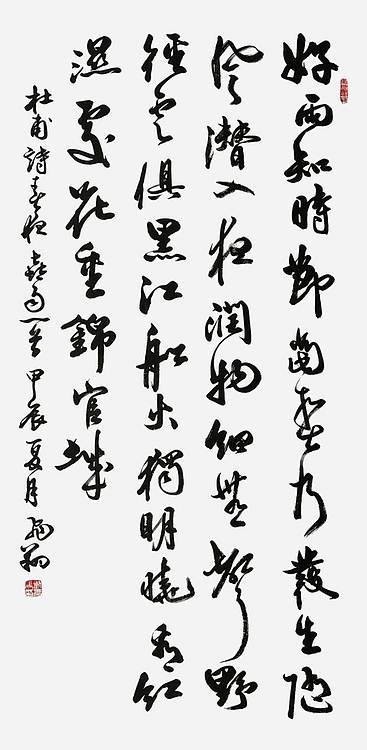 好雨知時節當春乃發生隨
風潛入夜潤物細無聲野
徑云俱黑江船火獨明曉看紅
濕處花重錦官城
杜甫詩春夜喜雨一首甲辰夏月